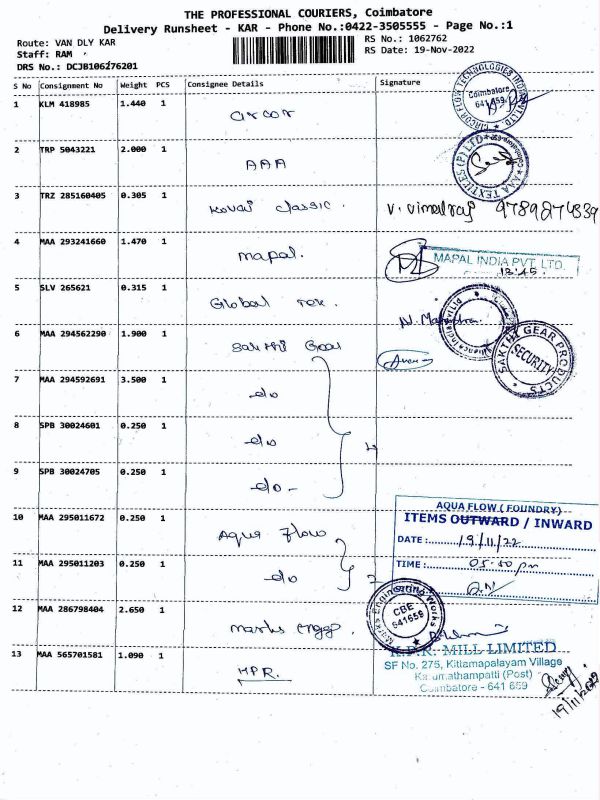 THE PROFESSIONAL COURIERS, Coimbatore
Delivery Runsheet - KAR - Phone No.:0422-3505555 - Page No.:1
Route: VAN DLY KAR
Staff: RAM
DRS No.: DCJB106276201
RS No.: 1062762
RS Date: 19-Nov-2022
S No Consignment No Weight PCS Consignee Details Signature
1 KLM 418985 1.440 1 circor
CIRCOR FLOW TECHNOLOGIES INDIA PVT LTD
Coimbatore
641 659
2 TRP 5043221 2.000 1 AAA
AAA TEXTILES (P) LTD
3 TRZ 285160405 0.305 1 Kovai classic. V. Vimalraj 9789274839
4 MAA 293241660 1.470 1 mapal.
MAPAL INDIA PVT. LTD.
13:45
5 SLV 265621 0.315 1 Global
6 MAA 294562290 1.900 1 Sakthi Gear
SAKTHI GEAR PRODUCTS
SECURITY
7 MAA 294592691 3.500 1 do
8 SPB 30024601 0.250 1 do
9 SPB 30024705 0.250 1 do-
10 MAA 295011672 0.250 1 Aqua Flow
AQUA FLOW ( FOUNDRY)
ITEMS OUTWARD / INWARD
DATE : 19/11/22
TIME : 05.50 pm
11 MAA 295011203 0.250 1 do 2
12 MAA 286798404 2.650 1 marks engg.
Marks Engineering Works
CBE
641659
13 MAA 565701581 1.090 1 KPR.
K.P.R. MILL LIMITED
SF No. 275, Kittamapalayam Village
Karumathampatti (Post)
Coimbatore - 641 659
19/11/2022